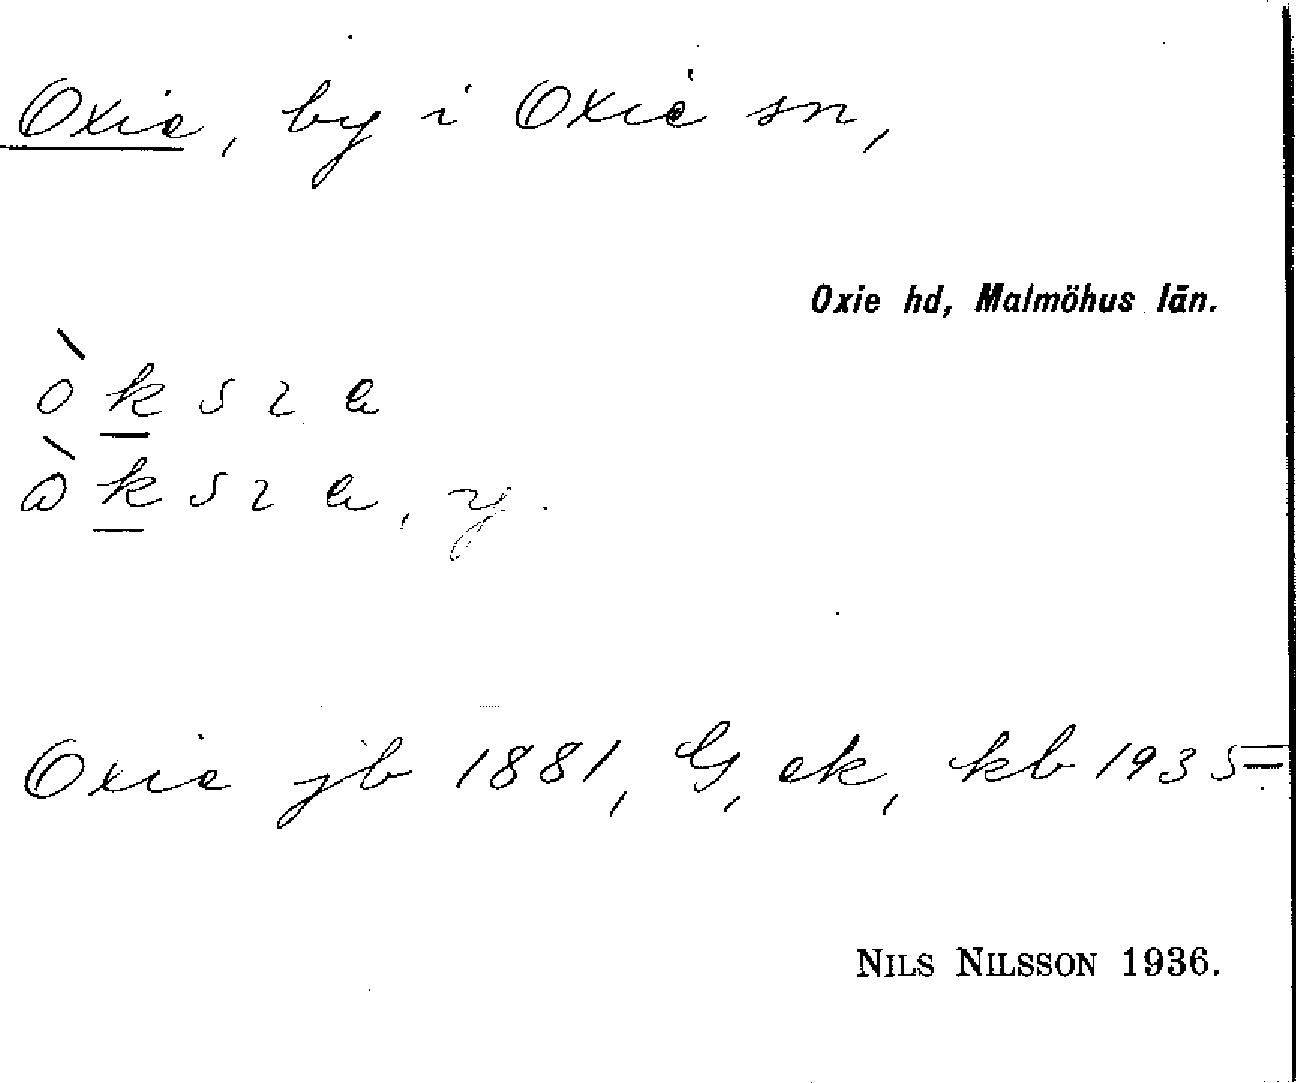 Oxie, by i Oxie sn,
Oxie hd, Malmöhus län.
Oxie jb 1881, G, ek, kb 1935
NILS NILSSON 1936.